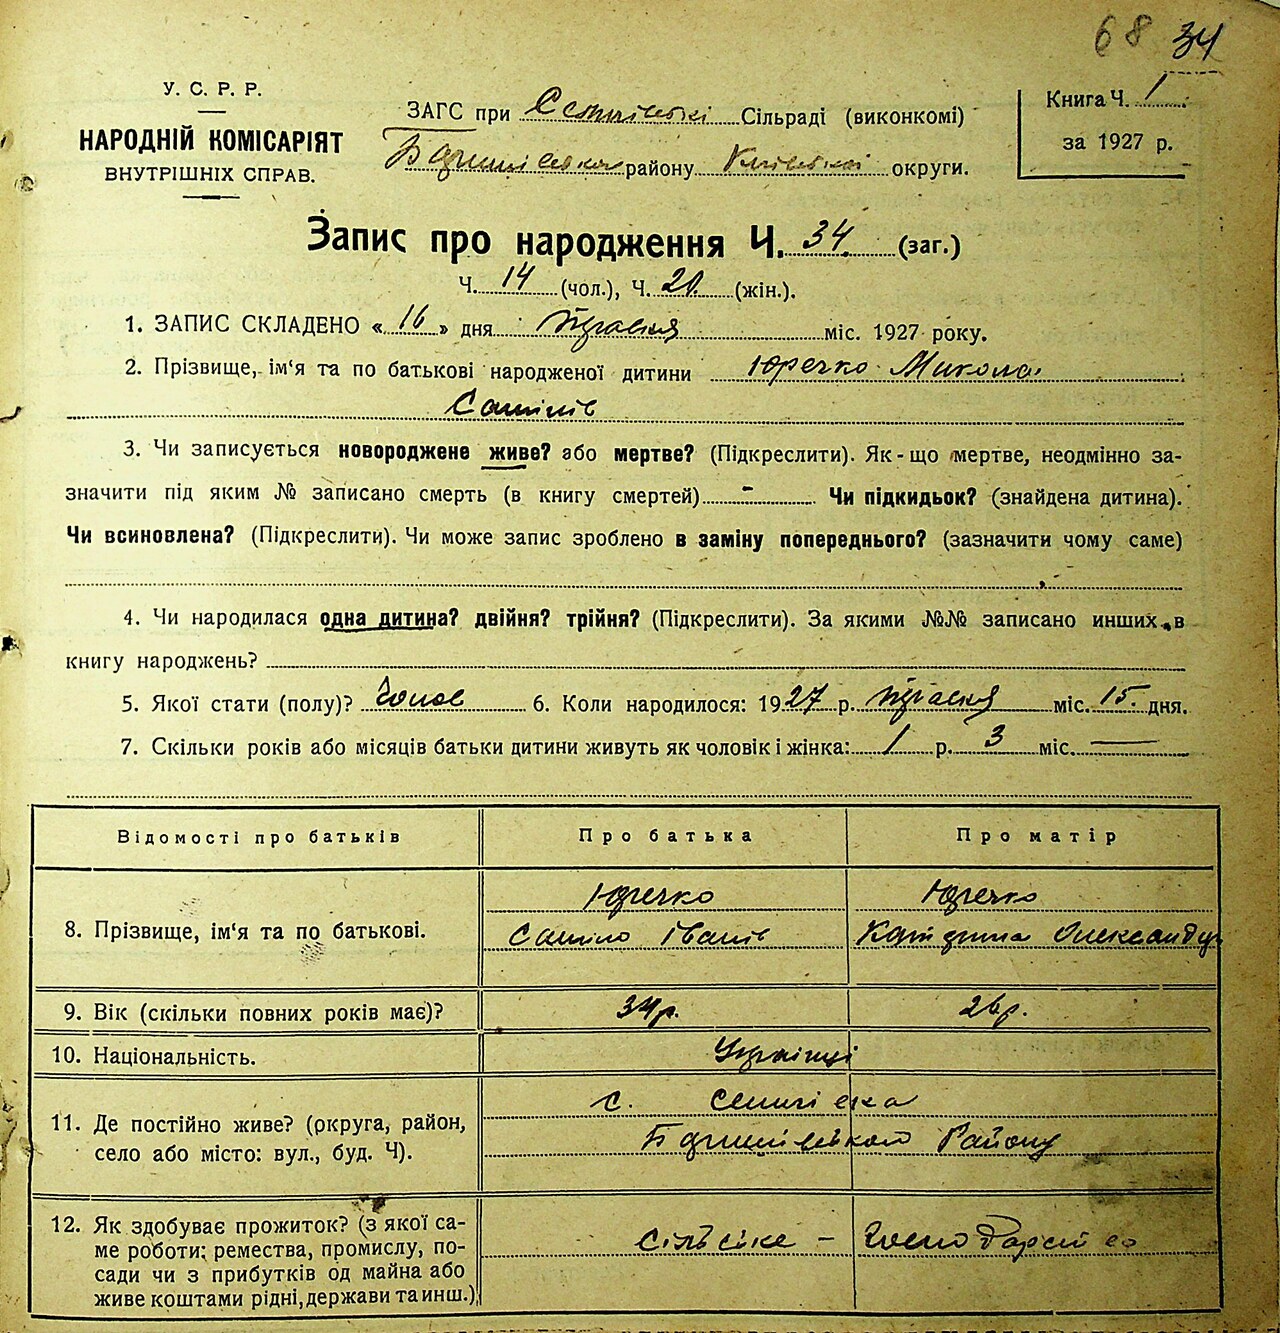 68 34
У. С. Р. Р.
НАРОДНІЙ КОМІСАРІЯТ
ВНУТРІШНІХ СПРАВ.
ЗАГС при Сільраді (виконкомі)
району Київської округи.
Книга Ч. 1
за 1927 р.
Запис про народження Ч. 34. (заг.)
Ч. 14 (чол.), Ч. 20. (жін.).
1. ЗАПИС СКЛАДЕНО «16» дня травня міс. 1927 року.
2. Прізвище, ім‘я та по батькові народженої дитини Юречко Микола
Саміліє
3. Чи записується новороджене живе? або мертве? (Підкреслити). Як-що мертве, неодмінно за-
значити під яким № записано смерть (в книгу смертей) - Чи підкидьок? (знайдена дитина).
Чи всиновлена? (Підкреслити). Чи може запис зроблено в заміну попереднього? (зазначити чому саме)
4. Чи народилася одна дитина? двійня? трійня? (Підкреслити). За якими №№ записано инших в
книгу народжень?
5. Якої стати (полу)? Чолов 6. Коли народилося: 1927 р. травня міс. 15. дня.
7. Скільки років або місяців батьки дитини живуть як чоловік і жінка: 1 р. 3 міс. —
Відомості про батьків Про батька Про матір
Юречко Юречко
8. Прізвище, ім‘я та по батькові. Саміло Іванів Катерина Олександр
9. Вік (скільки повних років має)? 34р. 26р.
10. Національність. Українці
с.
11. Де постійно живе? (округа, район,
село або місто: вул., буд. Ч). Району
12. Як здобуває прожиток? (з якої са-
ме роботи: ремества, промислу, по- сільське – господарство
сади чи з прибутків од майна або
живе коштами рідні, держави та инш.)